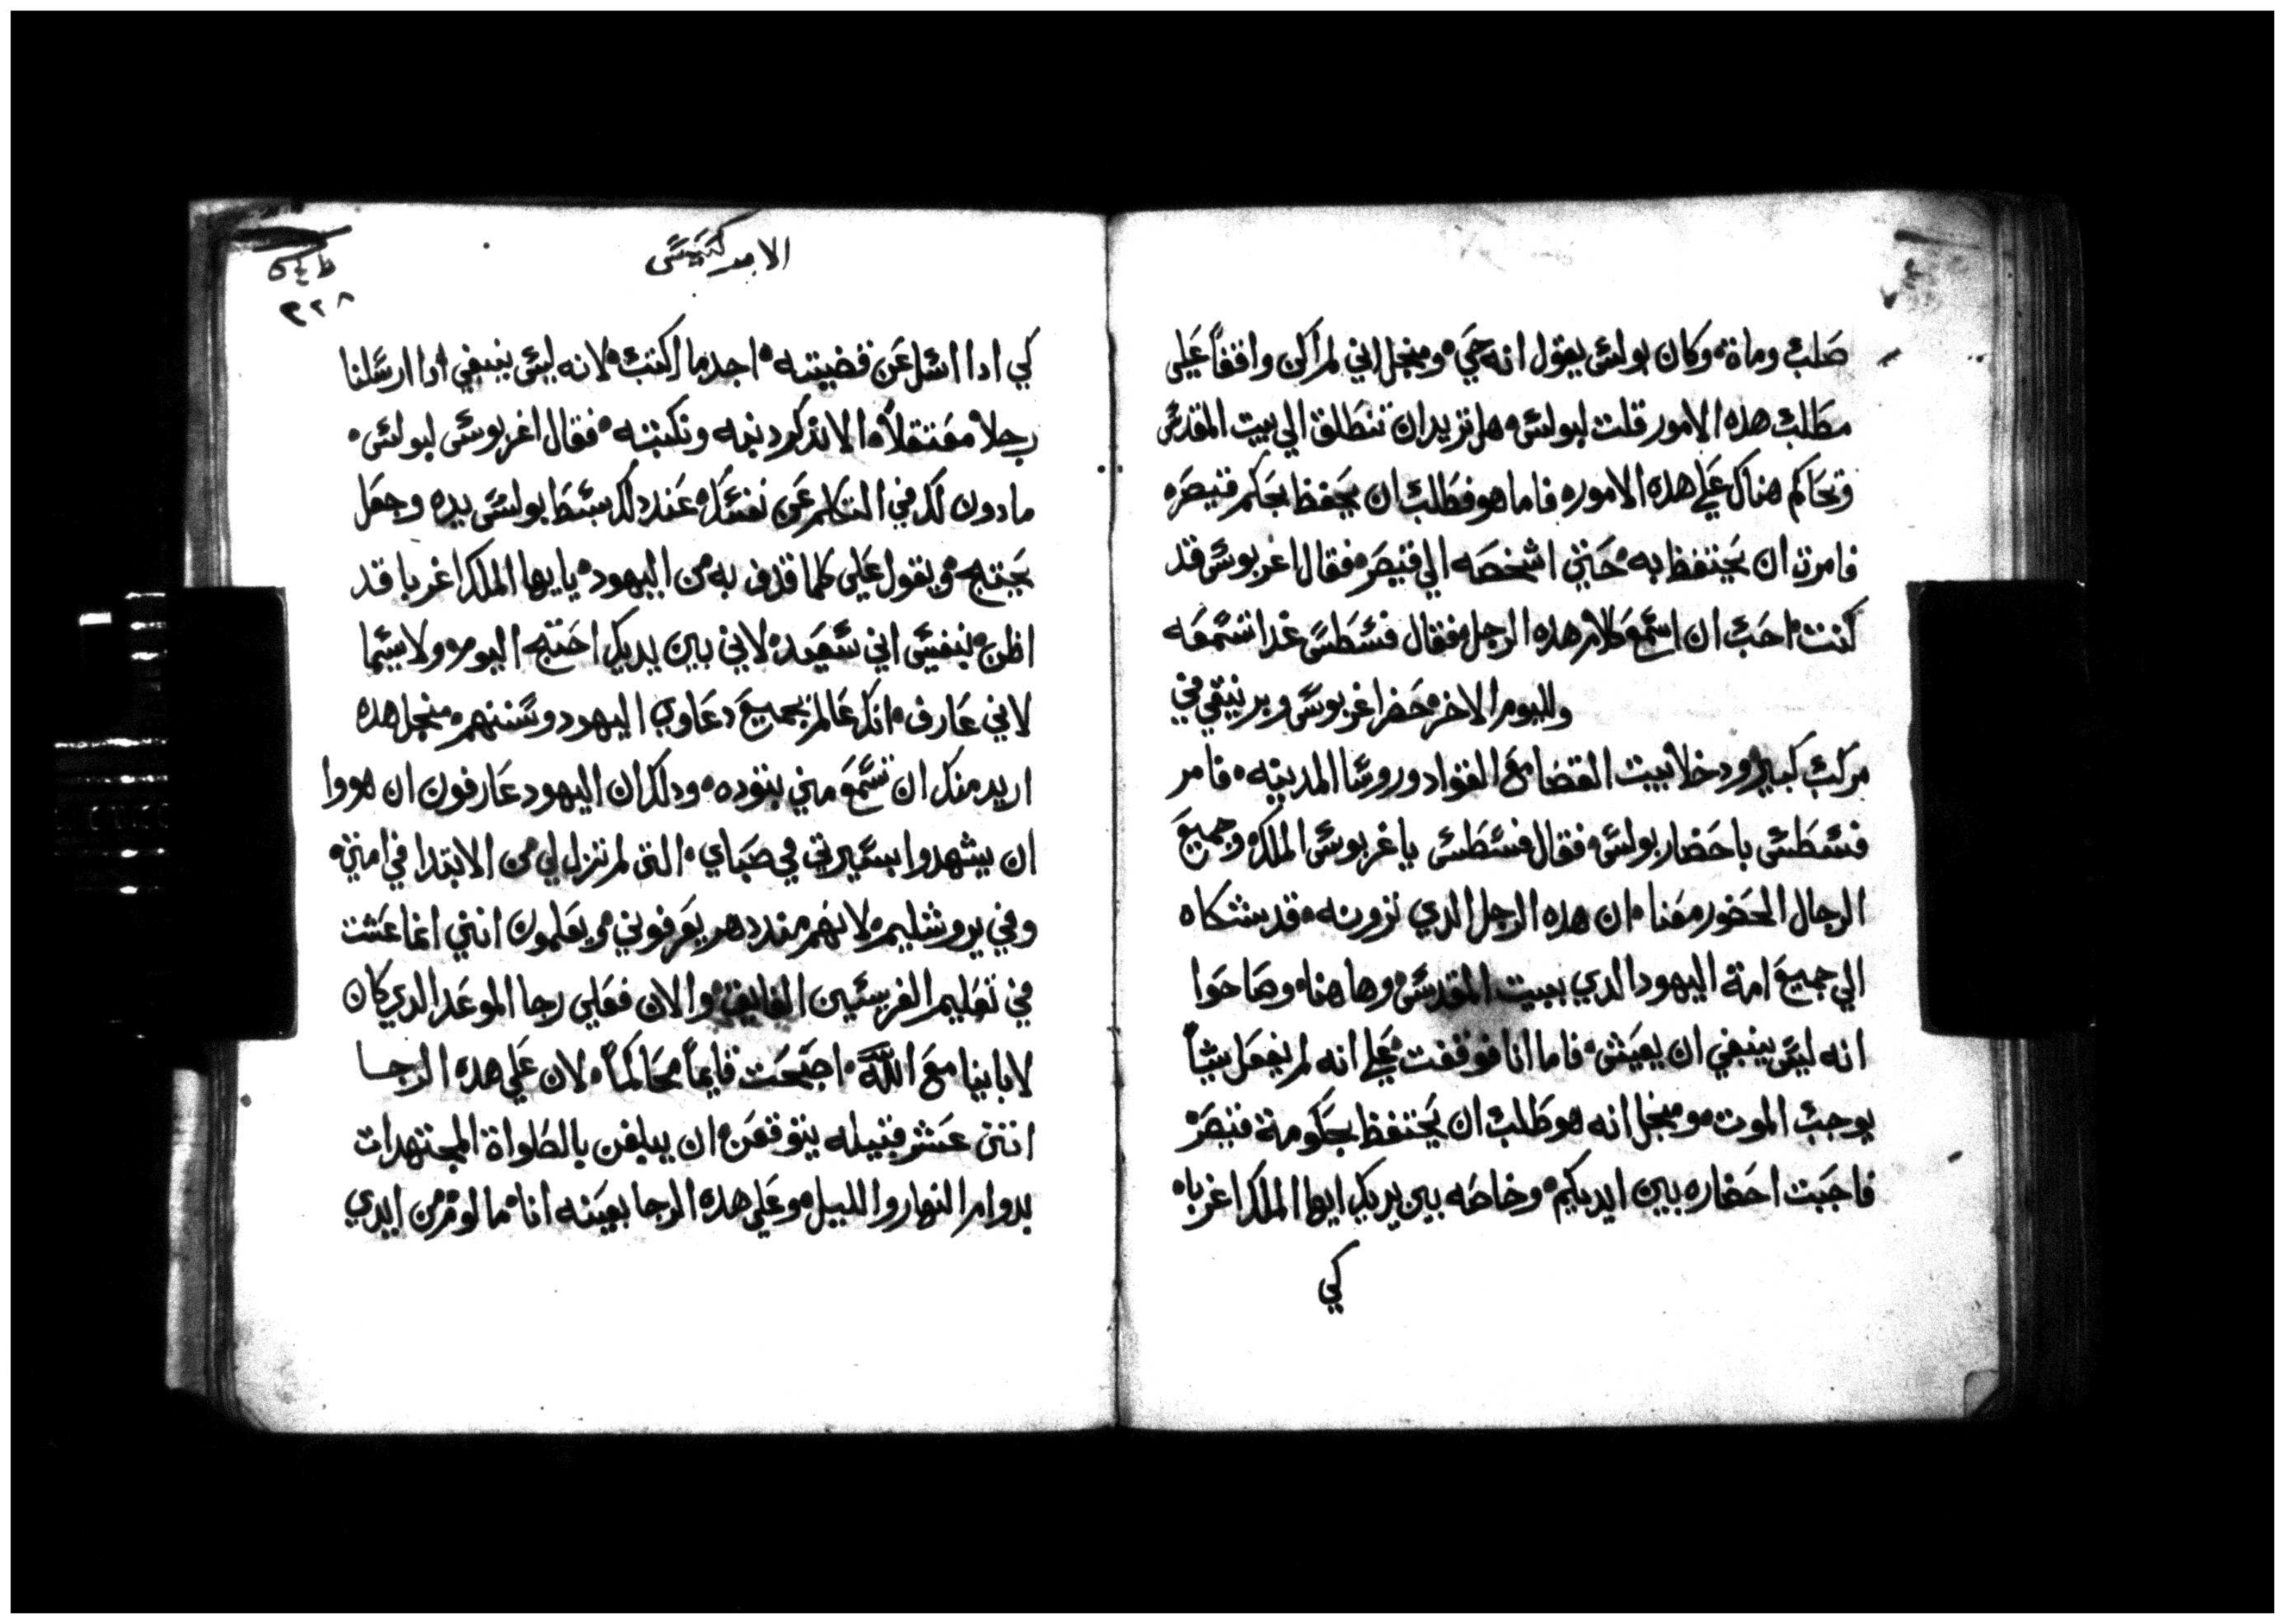 صلب وماة وكان بولس يقول انه حي ومنجل اني لم اكن واقفاً علي
مطلب هده الامور قلت لبولس هل تريد ان تنطلق الي بيت المقدس
وتحاكم هناك علي هده الامور فاما هو فطلب ان يحفظ بحكم قيصر
فامرت ان يحتفظ به حتي اشخصه الي قيصر فقال اغربوس قد
كنت احب ان اسمع كلام هده الرجل فقال فسطس غدا تسمعه
ولليوم الاخر حضر اغربوس وبرنيقي في
مركب كبير ودخلا بيت القضا مع القواد وروسا المدينه فامر
فسطس باحضار بولس فقال فسطس ياغربوس الملك وجميع
الرجال الحضور معنا ان هده الرجل الدي ترونه قد شكاه
الي جميع امة اليهود الدي ببيت المقدس وهاهنا وصاحوا
انه ليس ينبغي ان يعيش فاما انا فوقفت علي انه لم يفعل شياً
يوجب الموت ومنجل انه هو طلب ان يحتفظ بحكومة قيصر
فاحببت احضاره بين ايديكم وخاصه بين يديك ايها الملك اغربا
كي
الابركسيس
٢٢٨
كي ادا اسل عن قضيته اجد ما اكتب لانه ليس ينبغي ادا ارسلنا
رجلاً معتقلاً الا ندكر دنبه ونكبته فقال اغربوس لبولس
مادون لك في التكلم عن نفسك عند دلك بسط بولس يده وجعل
يحتج ويقول علي كلما قدف به من اليهود يايها الملك اغربا قد
اظن بنفسي اني سعيد لاني بين يديك احتج اليوم ولاسيما
لاني عارف انك عالم بجميع دعاوي اليهود وسننهم منجل هده
اريد منك ان تسمع مني بتوده ودلك ان اليهود عارفون ان هووا
ان يشهدوا بسيرتي في صباي التي لم تزل لي من الابتدا في امتي
وفي يروشليم لانهم مند دهر يعرفوني ويعلمون انني انما عشت
في تعليم الفرسيين الفايق والان فعلي رجا الموعد الدي كان
لابابنا مع الله اصبحت قايماً محاكماً لان علي هده الرجا
اثني عشر قبيله يتوقعن ان يبلغن بالصلواة المجتهدات
بدوام النهار والليل وعلي هده الرجا بعينه انا ملوم من ايدي